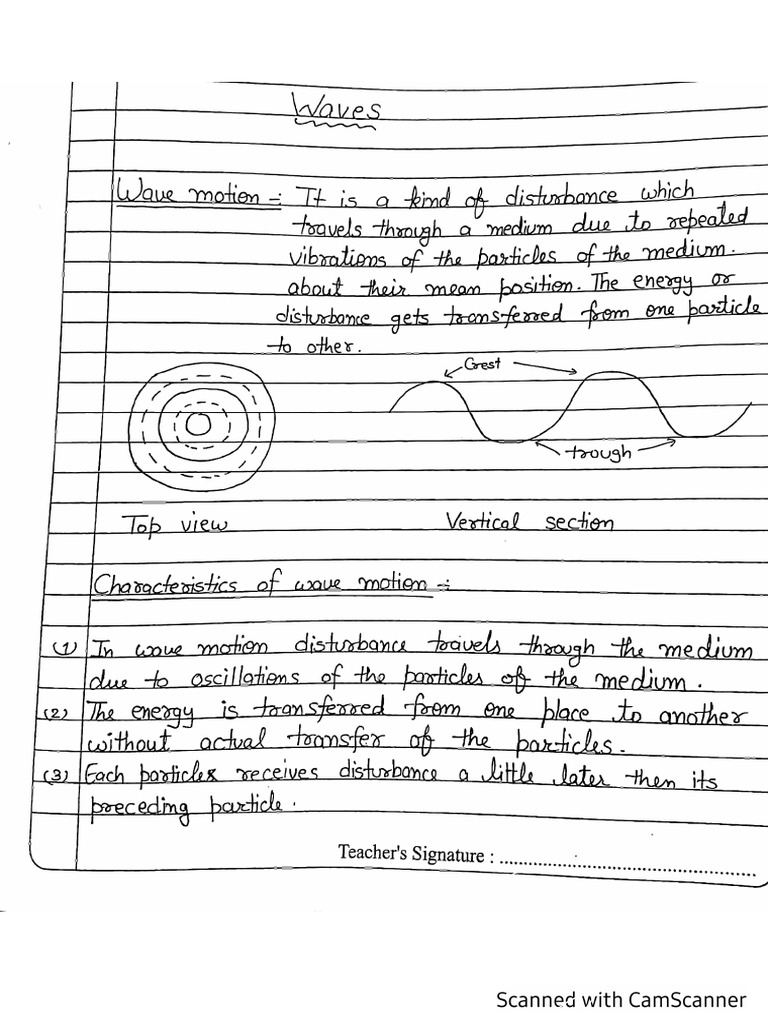 Waves
Wave motion :- It is a kind of disturbance which
travels through a medium due to repeated
vibrations of the particles of the medium.
about their mean position. The energy or
disturbance gets transferred from one particle
to other.
Crest
trough
Top view
Vertical section
Characteristics of wave motion :-
(1) In wave motion disturbance travels through the medium
due to oscillations of the particles of the medium.
(2) The energy is transferred from one place to another
without actual transfer of the particles.
(3) Each particles receives disturbance a little later then its
preceding particle.
Teacher's Signature : ........................................................
Scanned with CamScanner